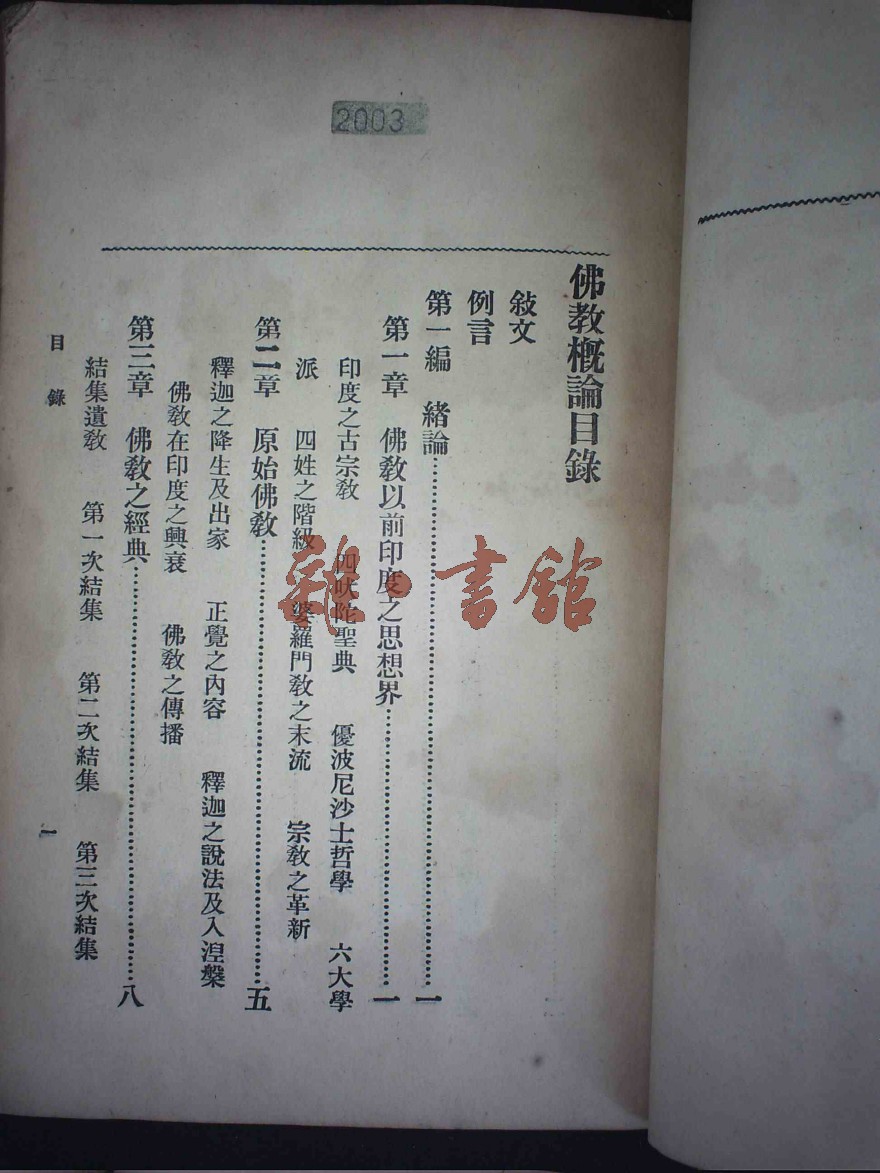 2003
佛教概論目錄
敍文
例言
第一編 緒論……一
第一章 佛教以前印度之思想界……一
印度之古宗教 四吠陀聖典 優波尼沙士哲學 六大學
派 四姓之階級 婆羅門教之末流 宗教之革新
第二章 原始佛教……五
釋迦之降生及出家 正覺之內容 釋迦之說法及入湼槃
佛教在印度之興衰 佛教之傳播
第三章 佛教之經典……八
結集遺教 第一次結集 第二次結集 第三次結集
目錄
一
雜·書館